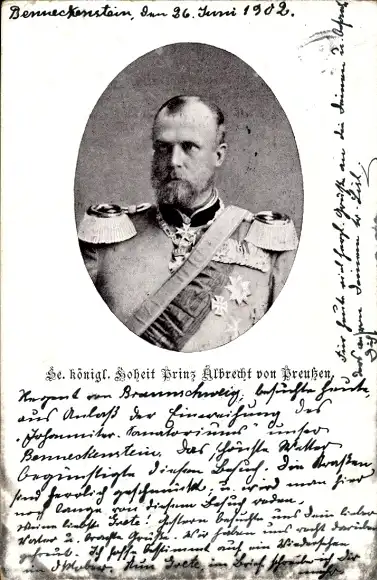 Benneckenstein, den 26. Juni 1902.
Se. königl. Hoheit Prinz Albrecht von Preußen,
Regent von Braunschweig, besuchte heute,
aus Anlaß der Einweihung des
"Johanniter-Sanatoriums" unser
Benneckenstein. Das schönste Wetter
begünstigte diesen Besuch. Die Straßen
sind herrlich geschmückt, u. wird man hier
noch lange von diesem Besuch reden.
Meine liebste Grete! Gestern besuchte uns dein lieber
Vater u. brachte Grüße. Wir haben uns recht darüber
gefreut. Ich hoffe bestimmt auf ein Wiedersehen
im Oktober. Nun Grete, im Brief schreibe ich dir
Für heute viel herzl. Grüße an die